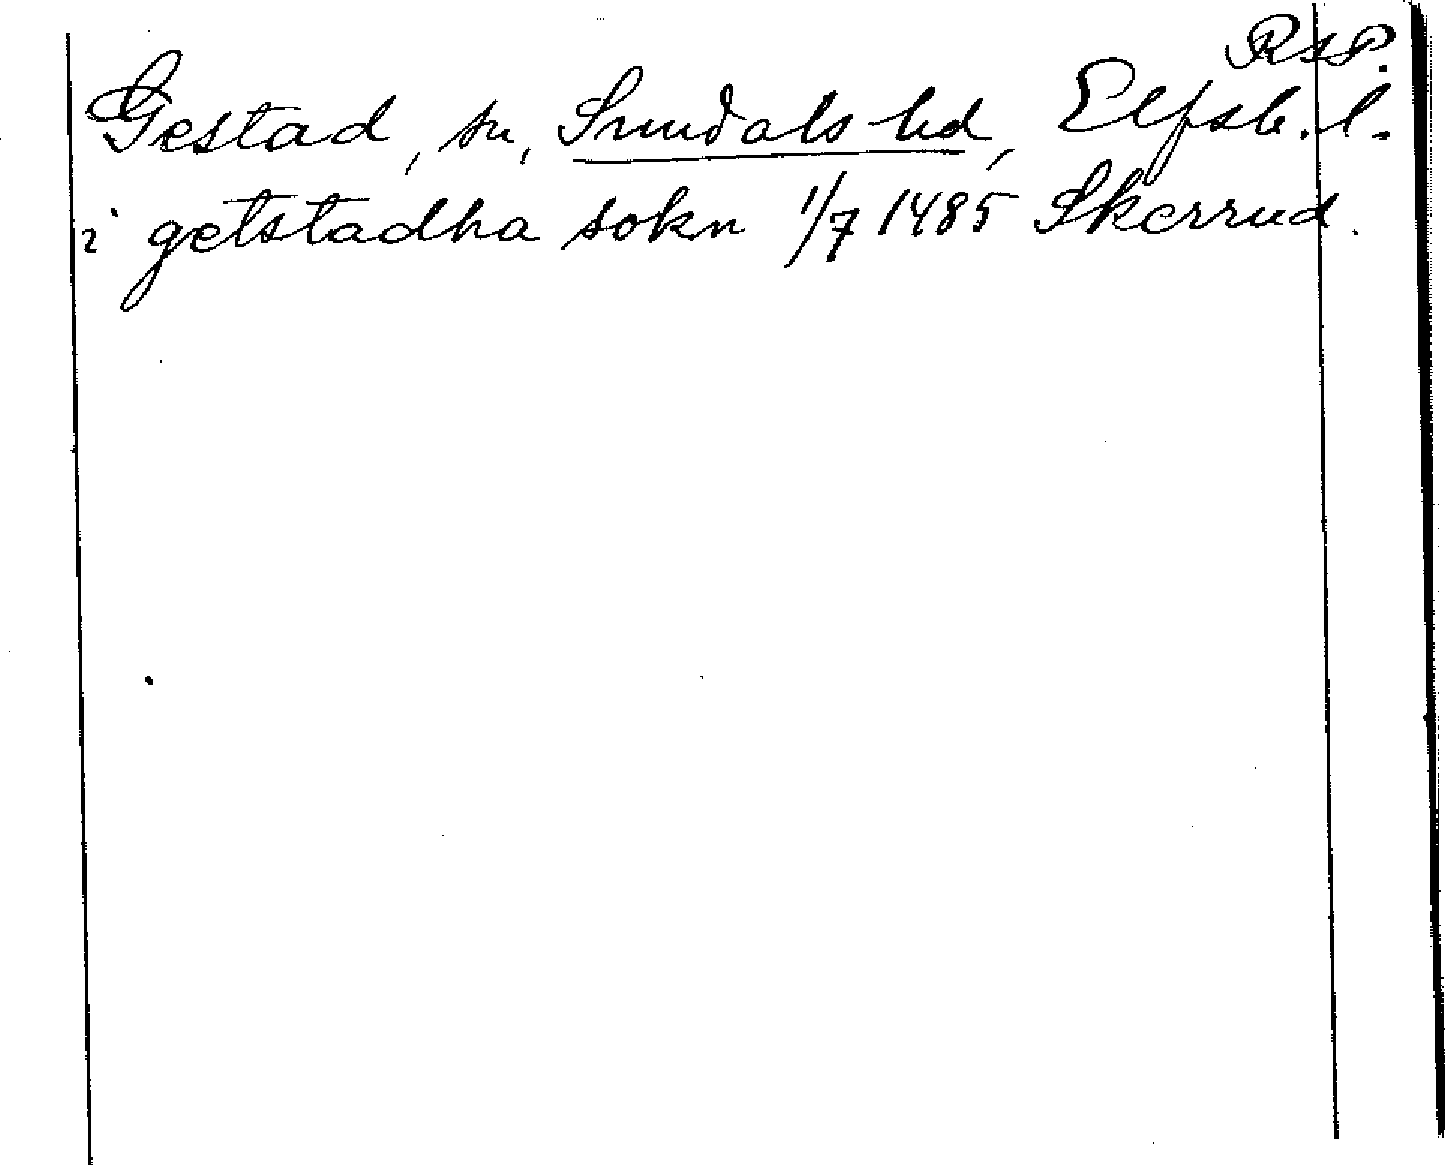 RAP.
Gestad, sn, Sundals hd, Elfsb. l.
i getstadha sokn 1/7 1485 Skerrud.